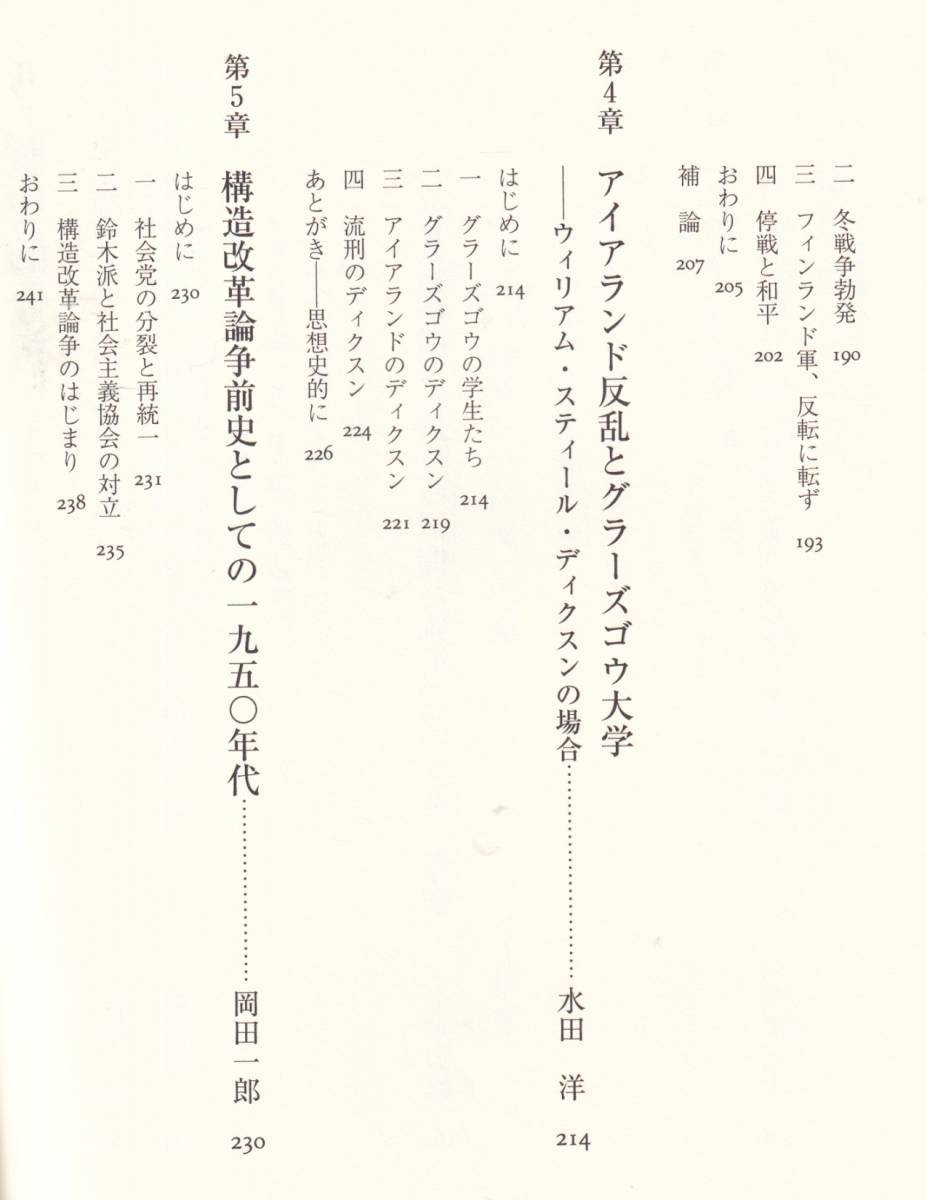 二 冬戦争勃発 190
三 フィンランド軍、反転に転ず 193
四 停戦と和平 202
おわりに 205
補 論 207
第4章 アイアランド反乱とグラーズゴウ大学
――ウィリアム・スティール・ディクスンの場合………………………水田 洋 214
はじめに 214
一 グラーズゴウの学生たち 214
二 グラーズゴウのディクスン 219
三 アイアランドのディクスン 221
四 流刑のディクスン 224
あとがき――思想史的に 226
第5章 構造改革論争前史としての一九五〇年代………………………岡田一郎 230
はじめに 230
一 社会党の分裂と再統一 231
二 鈴木派と社会主義協会の対立 235
三 構造改革論争のはじまり 238
おわりに 241